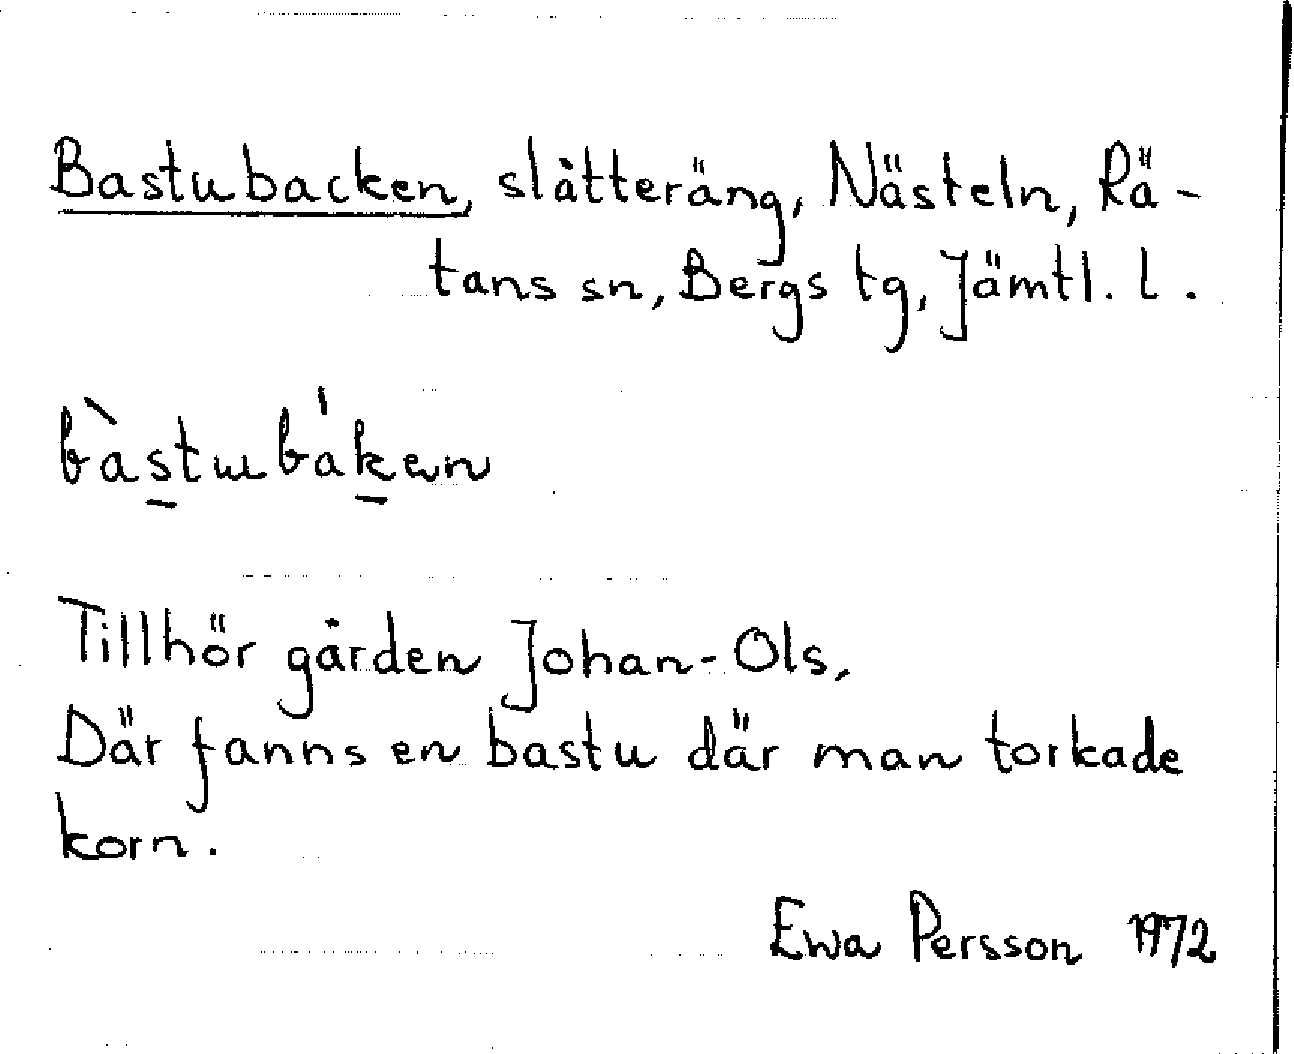 Bastubacken, slåtteräng, Nästeln, Rä-
tans sn, Bergs tg, Jämtl. l.
bàs̠tubák̠en
Tillhör gården Johan-Ols.
Där fanns en bastu där man torkade
korn.
Ewa Persson 1972